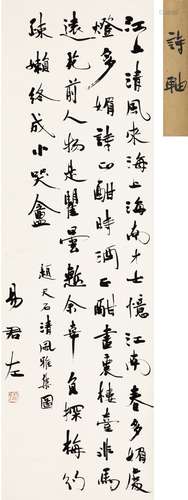 詩軸
江上清風來海上海南大士憶江南春多媚處
燈多媚詩正酣時酒正酣畫裏樓臺非馬
遠花前人物是瞿曇慚余辜負探梅約
疎嬾終成小哭盦
題天石清風雅集圖
易君左